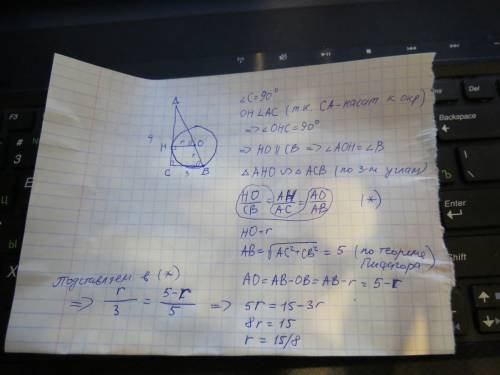 ∠C=90°
OH⊥AC (т.к. CA-касат к окр)
⇒ ∠OHC=90°
⇒ HO∥CB ⇒ ∠AOH=∠B
△AHO ∾ △ACB (по 3-м углам)
HO/CB = AH/AC = AO/AB (*)
HO=r
AB=√(AC²+CB²) = 5 (по теореме Пифагора)
AO=AB-OB=AB-r = 5-r
Подставляем в (*)
⇒ r/3 = (5-r)/5 ⇒ 5r=15-3r
8r=15
r = 15/8
A
4
H
r
O
r
C
3
B
F3
Enter
Shift
Ctrl